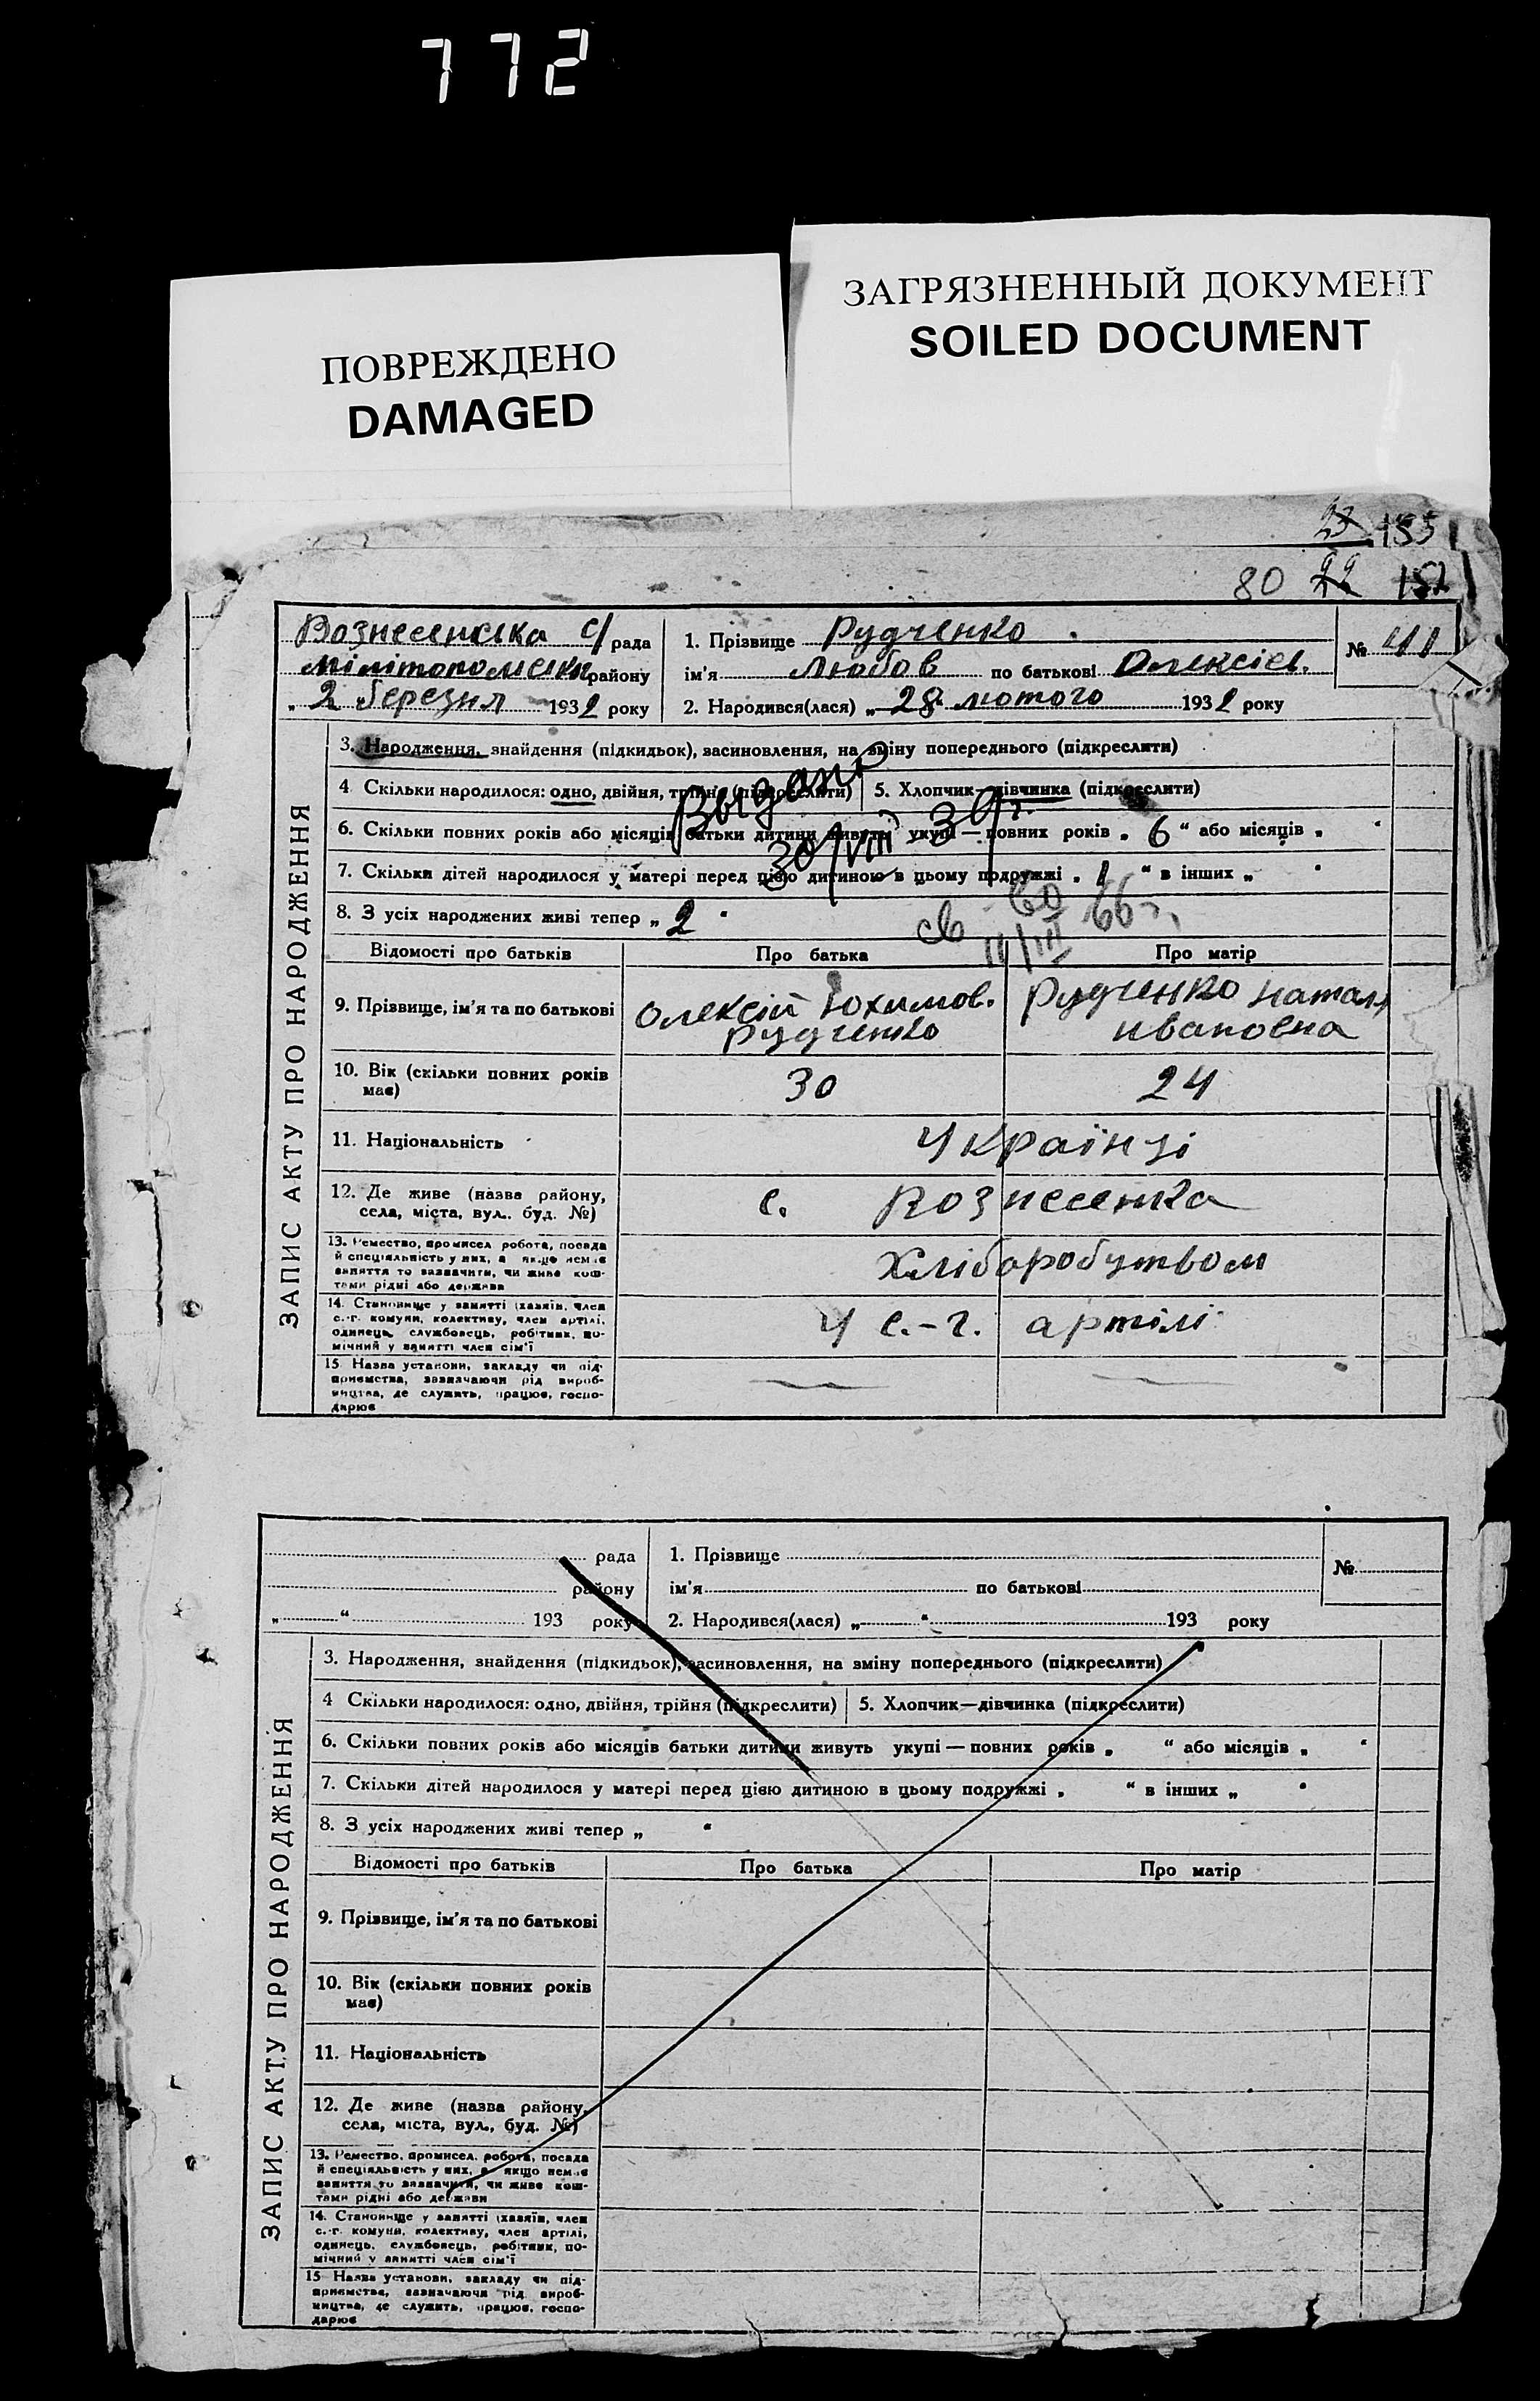 772
ПОВРЕЖДЕНО
DAMAGED
ЗАГРЯЗНЕННЫЙ ДОКУМЕНТ
SOILED DOCUMENT
23 155
80 22 152
Вознесенська с/рада
Мілітопольськ району
„ 2 березня 1932 року
1. Прізвище Рудченко
ім'я Любов по батькові Олексієв.
2. Народився(лася) „ 28 лютого 1932 року
№ 41
ЗАПИС АКТУ ПРО НАРОДЖЕННЯ
3. Народження, знайдення (підкидьок), засиновлення, на зміну попереднього (підкреслити)
4 Скільки народилося: одно, двійня, трійня (підкреслити) 5. Хлопчик—дівчинка (підкреслити)
Выдано
30/VIII 39г.
6. Скільки повних років або місяців батьки дитини живуть укупі — повних років „ 6 “ або місяців „ “
7. Скільки дітей народилося у матері перед цією дитиною в цьому подружжі „ 1 “ в інших „ “
8. З усіх народжених живі тепер „ 2 “
св 66г.
Відомості про батьків Про батька Про матір
9. Прізвище, ім'я та по батькові
Олексій Юхимов.
Рудченко
Рудченко Натал
Ивановна
10. Вік (скільки повних років має) 30 24
11. Національність Українці
12. Де живе (назва району, села, міста, вул. буд. №) с. Вознесенка
13. Ремество, промисел робота, посада
й спеціяльність у них, а якщо немає
заняття то зазначити, чи живе кош-
тами рідні або держави
Хліборобуством
14. Становище у занятті (хазяїн, член
с.-г. комуни, колективу, член артілі,
одинець, службовець, робітник, по-
мічний у занятті член сім'ї
У с.-г. артілі
15 Назва установи, закладу чи під-
приємства, зазначаючи рід вироб-
ництва, де служить, працює, госпо-
дарює
рада
району
„ “ 193 року
1. Прізвище
ім'я по батькові
2. Народився(лася) „ “ 193 року
№
ЗАПИС АКТУ ПРО НАРОДЖЕННЯ
3. Народження, знайдення (підкидьок), засиновлення, на зміну попереднього (підкреслити)
4 Скільки народилося: одно, двійня, трійня (підкреслити) 5. Хлопчик—дівчинка (підкреслити)
6. Скільки повних років або місяців батьки дитини живуть укупі — повних років „ “ або місяців „ “
7. Скільки дітей народилося у матері перед цією дитиною в цьому подружжі „ “ в інших „ “
8. З усіх народжених живі тепер „ “
Відомості про батьків Про батька Про матір
9. Прізвище, ім'я та по батькові
10. Вік (скільки повних років
має)
11. Національність
12. Де живе (назва району,
села, міста, вул., буд. №)
13. Ремество, промисел, робота, посада
й спеціяльність у них, а якщо немає
заняття то зазначити, чи живе кош-
тами рідні або держави
14. Становище у занятті (хазяїн, член
с.-г. комуни, колективу, член артілі,
одинець, службовець, робітник, по-
мічний у занятті член сім'ї
15 Назва установи, закладу чи під-
приємства, зазначаючи рід вироб-
ництва, де служить, працює, госпо-
дарює